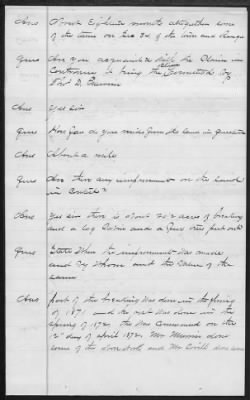 Ans About Eighteen months altogether some
of the time on Sec 34 of the town and Range
Ques Are you acquainted with the Claim in
Controversy being the claim Homestead by
Thos D.
Ans Yes Sir
Ques How far do you reside from the land in question
Ans About a mile
Ques Are there any improvements on the land
in Contest?
Ans Yes sir there is about 30 acres of breaking
and a log Cabin and a few trees put out
Ques State When the improvements was made
and by Whom and the value of the
same
Ans part of the breaking was done in the spring
of 1871 and the rest was done in the
Spring of 1872, the was Commenced on the
12th day of April 1872, Mr done
some of the and Mr done some